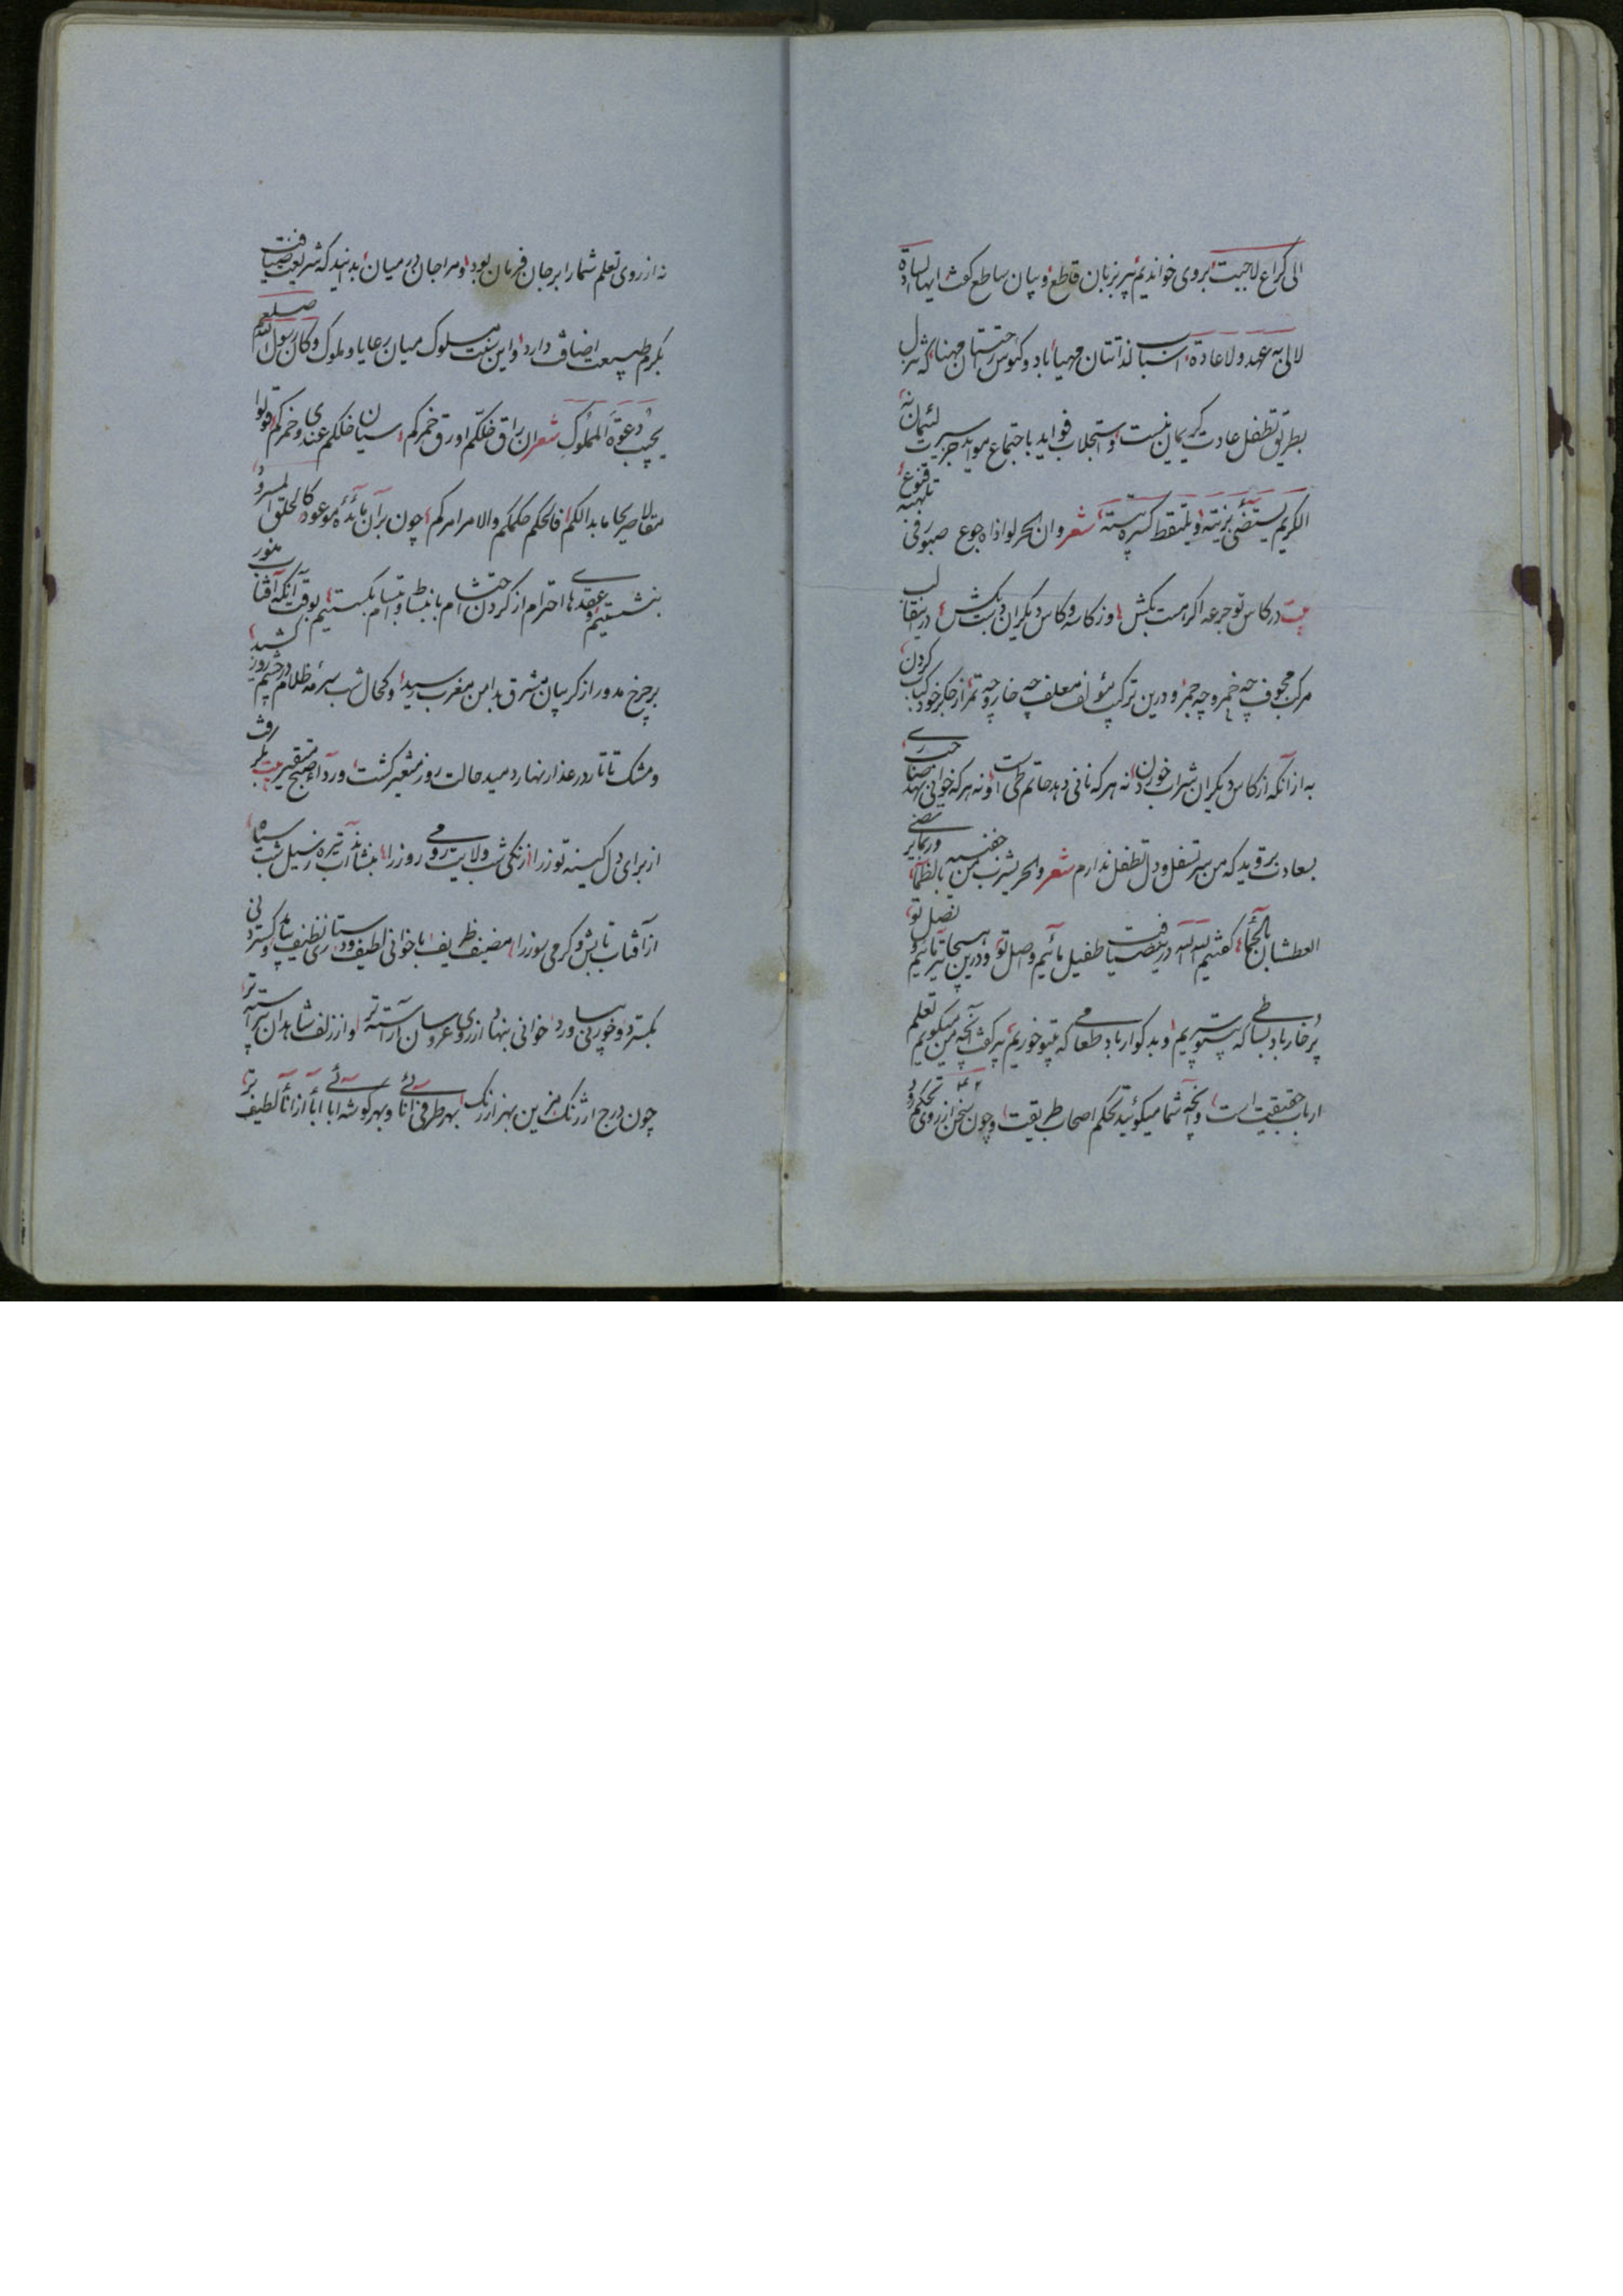 الی کراع لاجبت بروی خواندیم پیر بزبان قاطع و بیان ساطع کفت ایها السادة
لالی به عهد ولا عادة اسباب لذاتتان مهیا باد و کئوس راحتتان مهنا که نزل
بطریق تطفل عادت کریمان نیست و استجلاب فواید باجتماع موايد جز سیرت لئیمان نه
الکریم یستضئ بزیته ویلتقط کسیرة بیته شعر وان الحر لو اذاه جوع صبور فی قنوع
بیت در کاس تو جرعه اکر هست بکش وز کاسه و کاس دیکران دست بکش در این قالب
مرکب مجوف چه خمر و چه جمر و درین ترکیب مؤلف معلف چه خار و چه تمر از جکر خود کباب کردن
به از آنکه از کاس دیکران شراب خوردن نه هر که نانی دهد حاتم طی است و نه هر که خوانی نهد
بسعادت بروید که من سر تسفل و دل تطفل ندارم شعر والحر یشرب من
العطشان بالجما کفتیم لله لله درین ضیافت طفیل مائیم و اصل تو و درین
پر خار باد بساطی که بیتو سپریم و بد کوار باد طعامی که بیتو خوریم پیر کفت آنچه من میکویم تعلم
ارباب حقیقت است و آنچه شما میکوئید تحکم اصحاب طریقت و چون سخن از روی تحکم رود
نه از روی تعلم شما را بر جان فرمان بود و مرا جان در میان بدانید که شریعت ضیافت
بکرم طبیعت اضافت دارد و این سنت مسلوک میان رعایا و ملوک وکان رسول الله صلعم
یجیب دعوة المملوک شعر ان راق خلکم او رق خمرکم سیان خلکم عندی و خمرکم قولوا
مقالا صریحا ما بدالکم فالحکم حکمکم والامر امرکم چون بر آن مائده موعود کالحلق المسرود
بنشستیم و عقدهای احترام از کردن احتشام بانبساط و ابتسام بکسستیم بوقت آنکه آفتاب منور
بر چرخ مدور از کریبان مشرق بدامن مغرب رسید و کحال شب سرمه ظلام در چشم روز کشید
و مشک تاتار در عذار نهار دمید حالت روز متغیر کشت و رداء صبح
از برای دل کینه توز را از زنکی شب ولایت رومی روز را بنشاند آب تیره سیل شب سیاه
از آفتاب تابش و کرمی سوز را مضیف ظریف با خوانی لطیف و دستاری نظیف بیامد
بکسترد و خوردنی بیاورد خوانی بنهاد از روی عروسان آراسته تر و از زلف شاهدان پیراسته تر
چون درج ارژنک مزین بهزار رنک بهر طرفی انائی و بهر کوشه ابائی ابا از انا لطیف تر